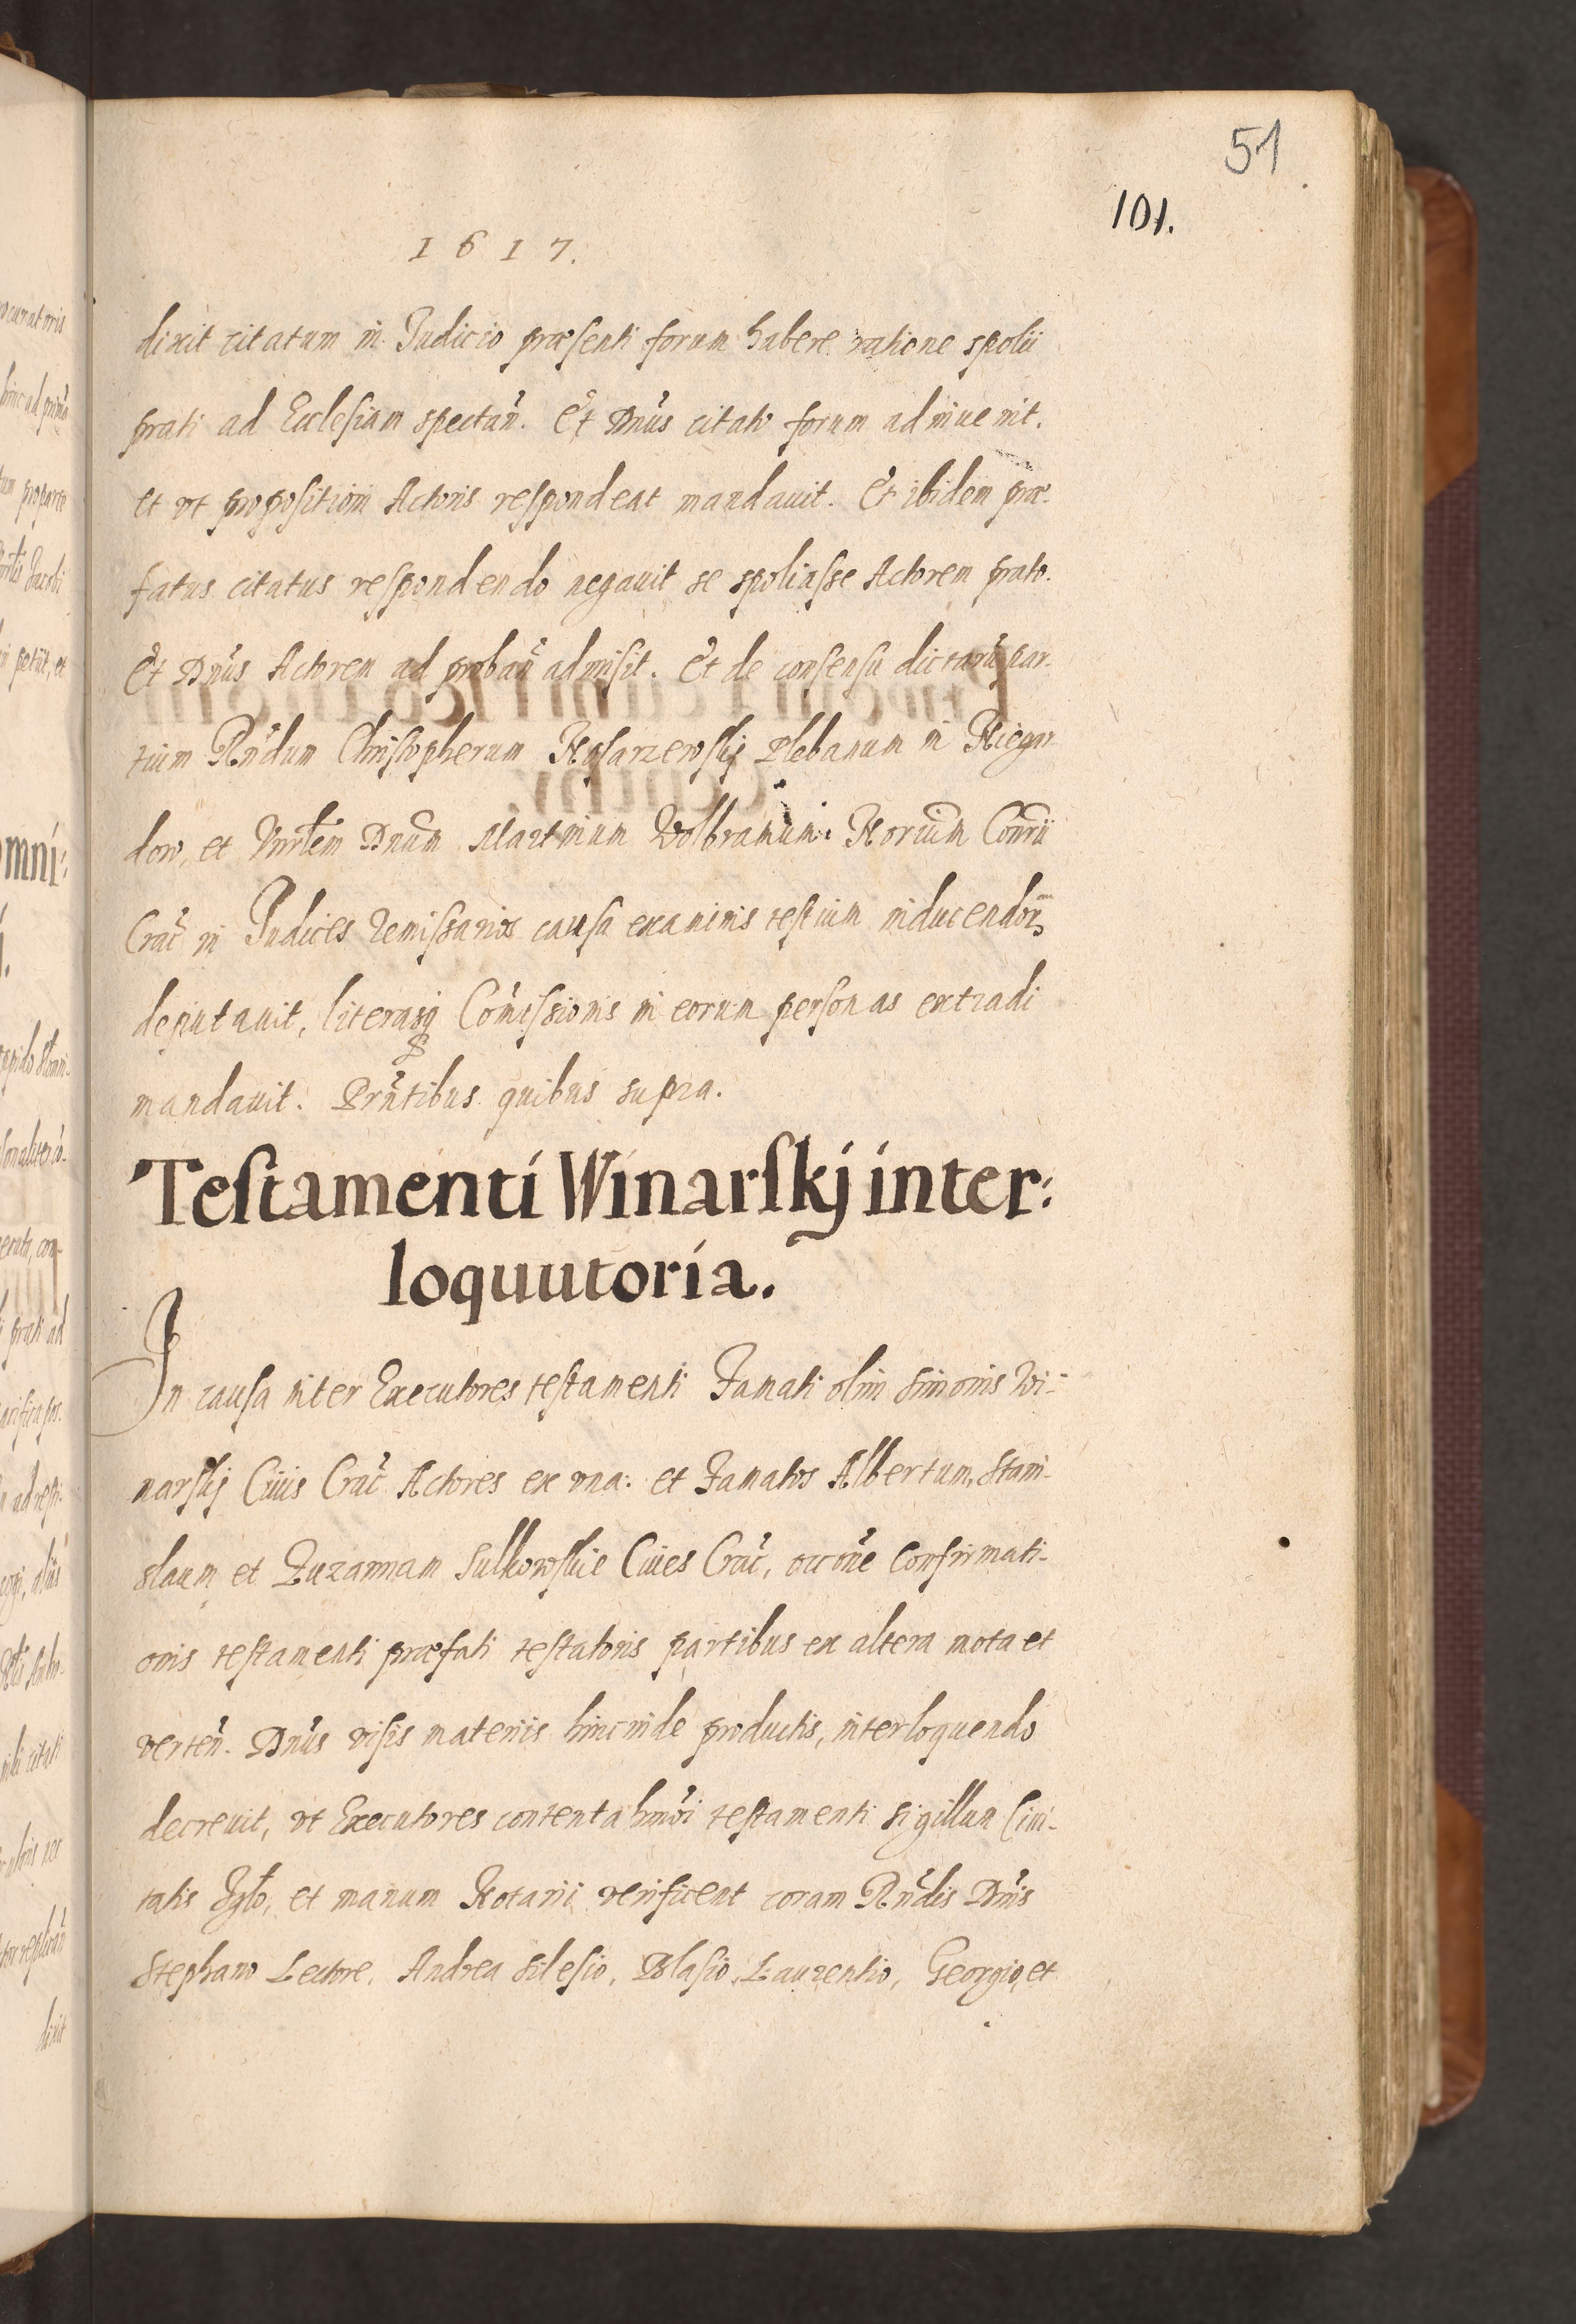 51
101.
1617.
dixit citatum in Judicio præsenti forum habere ratione spolii
prati ad Ecclesiam spectan̄. Et Dn̄us citati forum adinuenit.
et vt propositioni Actoris respondeat mandauit. Et ibidem præ-
fatus citatus respondendo negauit se spoliasse Actorem prato.
Et Dn̄us Actorem ad proban̄ admisit. Et de consensu dictarū par-
tium Rn̄dum Christopherum Kosarzewskij Plebanum in
dow, et Dnum Martinum Wolbramum
Crac̄ in Judices Remissarios causa examinis testium inducendor̄
deputauit, literasq Com̄issionis in eorum personas extradi
mandauit. Prn̄tibus quibus supra.
Testamenti Winarskj inter:
loquutoria.
In causa inter Executores testamenti Famati olim Simonis Wi-
narskij Ciuis Crac̄ Actores ex vna: et Famatos Albertum, Stani-
slaum et Zuzannam Sulkowskie Ciues Crac̄, occōne Confirmati-
onis testamenti præfati testatoris partibus ex altera mota et
verten̄. Dn̄us visis materiis hincinde productis, interloquendo
decreuit, vt Executores contenta hmōi testamenti sigillum Ciui-
tatis et manum Notarii verificent coram Rn̄dis Dn̄is
Stephano Lectore, Andrea Silesio, Blasio, Laurentio, Georgio, et